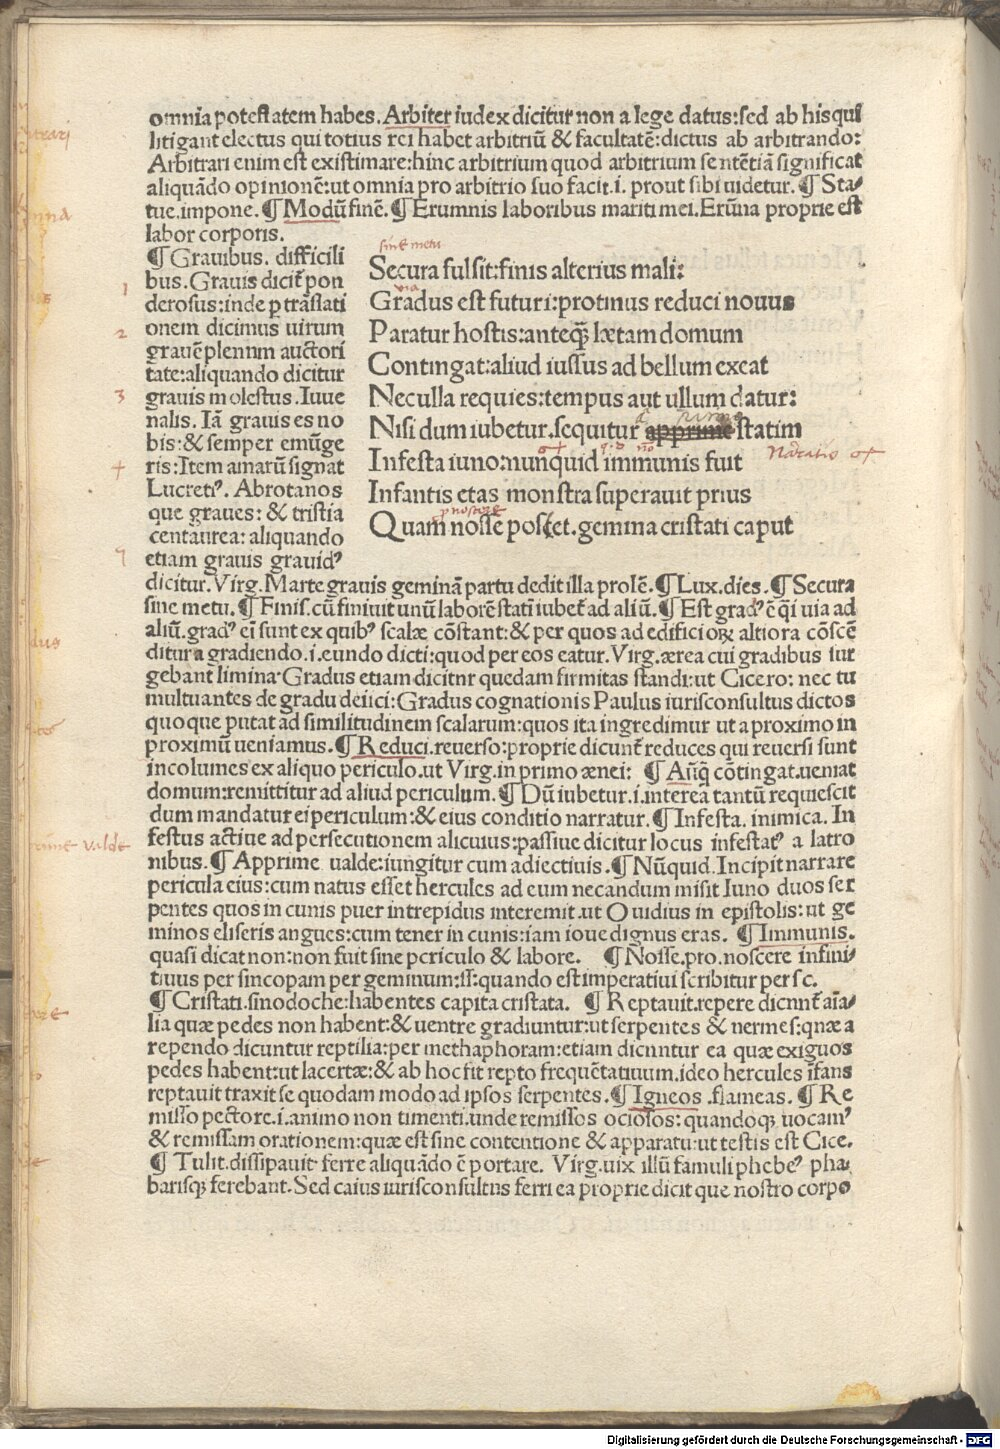 omnia potestatem habes. Arbiter iudex dicitur non a lege datus:sed ab his qui
litigant electus qui totius rei habet arbitriū & facultatē:dictus ab arbitrando:
Arbitrari enim est existimare:hinc arbitrium quod arbitrium sentētiā significat
aliquādo opinionē:ut omnia pro arbitrio suo facit.i. prout sibi uidetur. ¶ Sta-
tue.impone. ¶ Modū finē. ¶ Erumnis laboribus mariti mei.Erūna proprie est
labor corporis.
¶ Grauibus. difficili
bus. Grauis dicit̄ pon
derosus:inde p traslati
onem dicimus uirum
grauē plenum auctori
tate:aliquando dicitur
grauis molestus. Iuue
nalis. Iā grauis es no
bis:& semper emūge
ris:Item amarū signat
Lucretiꝰ. Abrotanos
que graues: & tristia
centaurea: aliquando
etiam grauis grauidꝰ
sine metu
Secura fulsit:finis alterius mali:
via
Gradus est futuri:protinus reduci nouus
Paratur hostis:anteq̄ lætam domum
Contingat:aliud iussus ad bellum exeat
Nec ulla requies:tempus aut ullum datur:
Nisi dum iubetur.sequitur apprime statim
Narratio
Infesta iuno:nunquid immunis fuit
Infantis etas monstra superauit prius
Quam nosse posset.gemina cristati caput
dicitur. Virg. Marte grauis geminā partu dedit illa prolē. ¶ Lux.dies. ¶ Secura
sine metu. ¶ Finis. cū finiuit unū laborē statī iubet̄ ad aliū. ¶ Est gradꝰ ē q̄i uia ad
aliū.gradꝰ ei sunt ex quibꝰ scalæ cōstant:& per quos ad edificioꝝ altiora cōscē
ditur a gradiendo.i.eundo dicti:quod per eos eatur. Virg.ærea cui gradibus sur
gebant limina.Gradus etiam dicitnr quedam firmitas standi:ut Cicero: nec tu
multuantes de gradu deiici:Gradus cognationis Paulus iurisconsultus dictos
quoque putat ad similitudinem scalarum:quos ita ingredimur ut a proximo in
proximū ueniamus. ¶ Reduci.reuerso:proprie dicunt̄ reduces qui reuersi sunt
incolumes ex aliquo periculo.ut Virg.in primo ænei: ¶ Anq̄ cōtingat.ueniat
domum:remittitur ad aliud periculum. ¶ Dū iubetur.i.interea tantū requiescit
dum mandatur ei periculum:& eius conditio narratur. ¶ Infesta. inimica. In
festus actiue ad persecutionem alicuius:passiue dicitur locus infestatꝰ a latro
nibus. ¶ Apprime ualde:iungitur cum adiectiuis. ¶ Nūquid.Incipit narrare
pericula eius:cum natus esset hercules ad eum necandum misit Iuno duos ser
pentes quos in cunis puer intrepidus interemit.ut Ouidius in epistolis:ut ge
minos eliseris angues:cum tener in cunis:iam ioue dignus eras. ¶ Immunis.
quasi dicat non:non fuit sine periculo & labore. ¶ Nosse.pro.noscere infini-
tiuus per sincopam per geminum:ss:quando est imperatiui scribitur per sc.
¶ Cristati.sinodoche:habentes capita cristata. ¶ Reptauit.repere dicnnt̄ aīa-
lia quæ pedes non habent:& uentre gradiuntur:ut serpentes & nermes:qnæ a
rependo dicuntur reptilia:per methaphoram:etiam dicnntur ea quæ exiguos
pedes habent:ut lacertæ:& ab hoc fit repto frequētatiuum.ideo hercules īfans
reptauit traxit se quodam modo ad ipsos serpentes. ¶ Igneos .flameas. ¶ Re
misso pectore.i.animo non timenti.unde remissos ociosos:quandoqꝫ uocamꝰ
& remissam orationem:quæ est sine contentione & apparatu:ut testis est Cice.
¶ Tulit.dissipauit ferre aliquādo ē portare. Virg.uix illū famuli phebeꝰ pha
barisqꝫ ferebant.Sed caius iurisconsultus ferri ea proprie dicit que nostro corpo
Digitalisierung gefördert durch die Deutsche Forschungsgemeinschaft - DFG